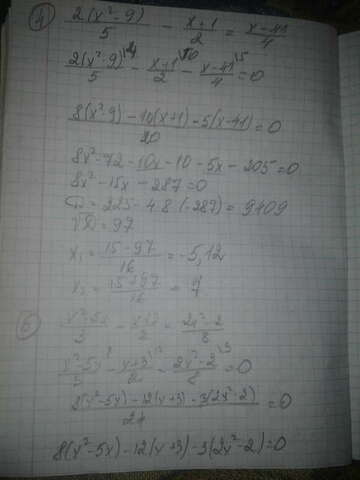 4) 2(x²-9)/5 - x+1/2 = x-41/4
2(x²-9)\4/5 - x+1\10/2 - x-41\5/4 = 0
8(x²-9)-10(x+1)-5(x-41)/20 = 0
8x²-72-10x-10-5x-205=0
8x²-15x-287=0
D=225-4·8·(-287)=9409
√D=97
x₁=15-97/16=-5,12
x₂=15+97/16=7
x²-5x/3 - x+3/2 = 2x²-2/8
x²-5x\8/3 - x+3\12/2 - 2x²-2\3/8 = 0
8(x²-5x)-12(x+3)-3(2x²-2)/24 = 0
8(x²-5x)-12(x+3)-3(2x²-2)=0